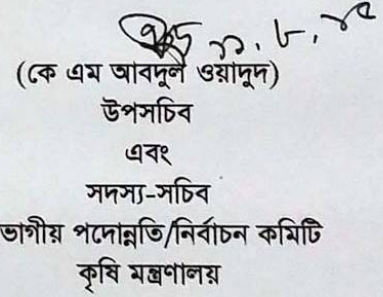 (কে এম আবদুল ওয়াদুদ)
উপসচিব
এবং
সদস্য-সচিব
ভাগীয় পদোন্নতি/নির্বাচন কমিটি
কৃষি মন্ত্রণালয়